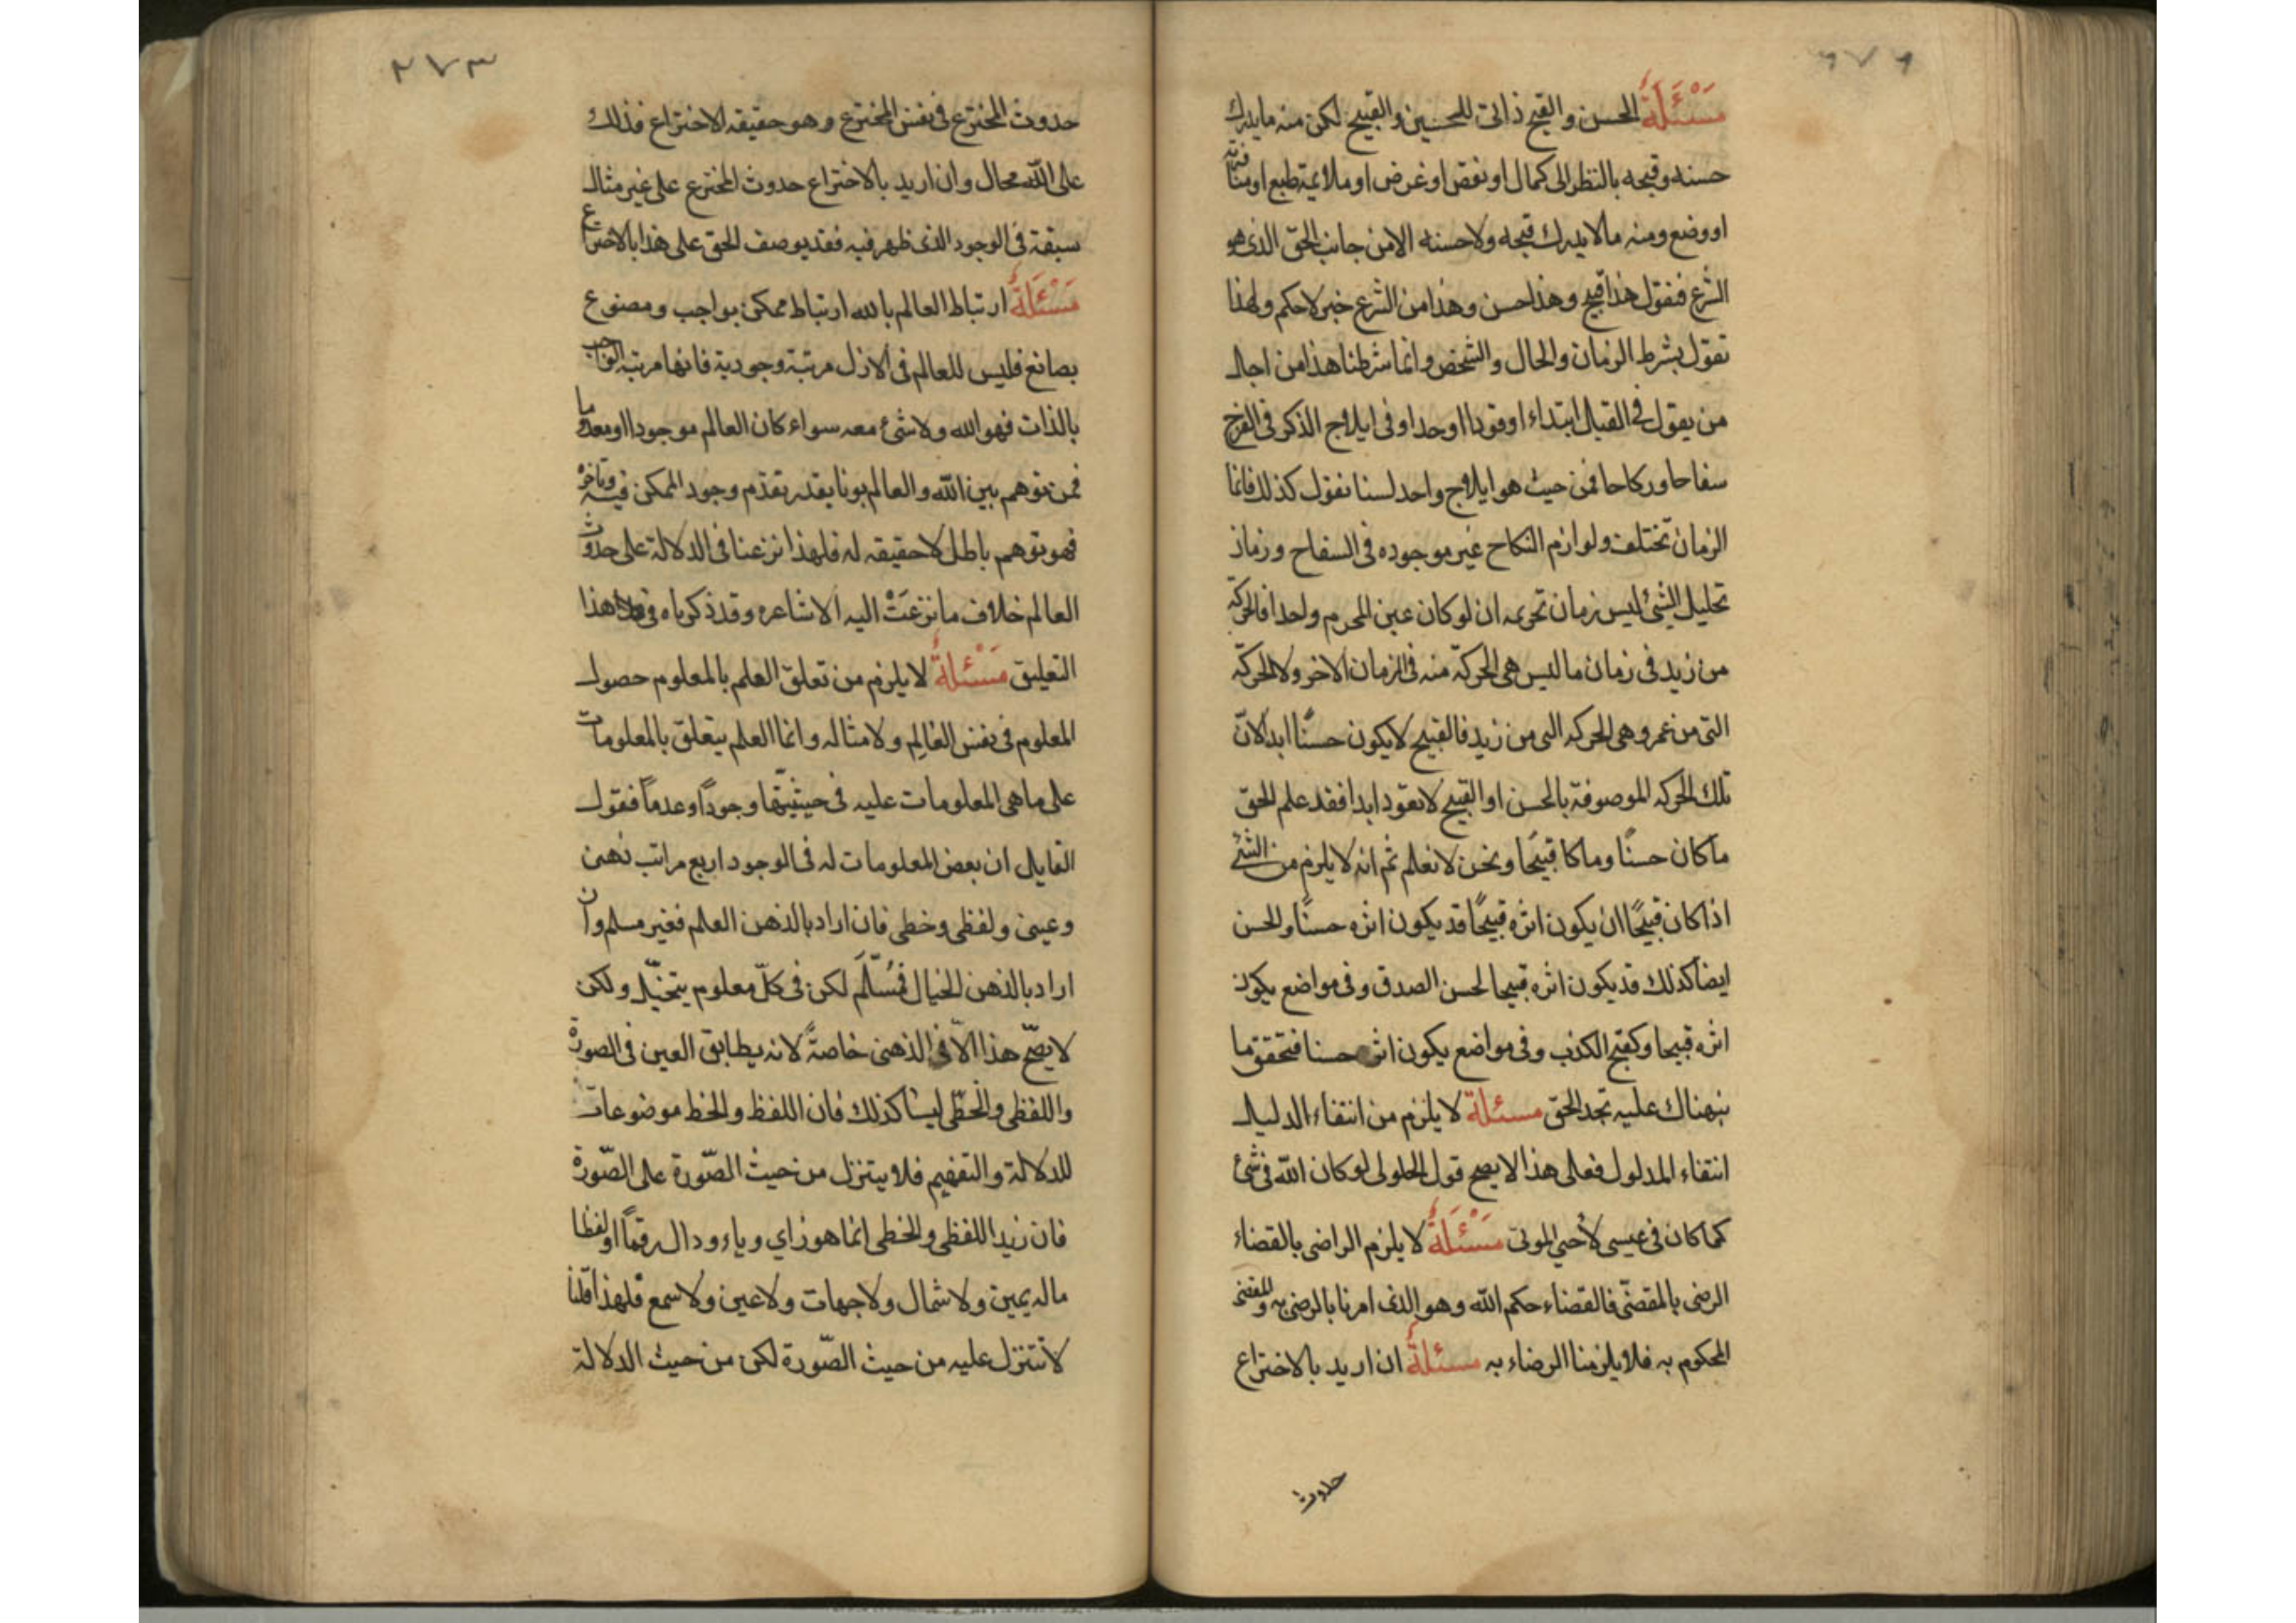 مَسْئَلَةٌ الحسن والقبح ذاتى للحسين والقبيح لكن منه ما يدرك
حسنه وقبحه بالنظر الى كمال او نقص او غرض او ملايمة طبع او منافرته
او وضع ومنه مالا يدرك قبحه ولاحسنه الا من جانب الحق الذى هو
الشرع فنقول هذا قبيح وهذا حسن وهذا من الشرع خبر لاحكم ولهذا
نقول بشرط الزمان والحال والشخص وانما شرطنا هذا من اجل
من يقول فى القتل ابتداء او قودا او حدا وفى ايلاج الذكر فى الفرج
سفاحا ونكاحا فمن حيث هو ايلاج واحد لسنا نقول كذلك فانما
الزمان تختلف ولوازم النكاح غير موجوده فى السفاح وزمان
تحليل الشئ ليس زمان تحريمه ان لو كان عين المحرم واحدا فالحركة
من زيد فى زمان ما ليس هى الحركة منه فى الزمان الاخر ولا الحركة
التى من عمرو هى الحركه التى من زيد فالقبيح لايكون حسنًا ابدا لانّ
تلك الحركه الموصوفة بالحسن او القبح لاتعود ابدا فقد علم الحق
ماكان حسنًا وما كا قبيحًا ونحن لانعلم ثم انه لا يلزم من الشئ
اذا كان قبيحًا ان يكون اثره قبيحًا قد يكون اثره حسنًا والحسن
ايضا كذلك قد يكون اثره قبيحا لحسن الصدق وفى مواضع يكون
اثره قبيحا وكقبح الكذب وفى مواضع يكون اثره حسنا فتحقق ما
نبهناك عليه تجد الحق مسئلة لا يلزم من انتفاء الدليل
انتفاء المدلول فعلى هذا لا يصح قول الحلولى لو كان الله فى شئ
كما كان فى عيسى لأحيى الموتى مَسْئَلَةٌ لا يلزم الراضى بالقضاء
الرضى بالمقضّى فالقضاء حكم الله وهو الذى امرنا بالرضى به والمقضى
المحكوم به فلا يلزمنا الرضاء به مسئلةٌ ان اريد بالاختراع
حدوث
٢٧٣
حدوث المخترع فى نفس المخترع وهو حقيقه الاختراع فذلك
على الله محال وان اريد بالاختراع حدوث المخترع على غير مثال
سبقة فى الوجود الذى ظهر فيه فقد يوصف الحق على هذا بالاختراع
مَسْئَلَةٌ ارتباط العالم بالله ارتباط ممكن بواجب ومصنوع
بصانع فليس للعالم فى الازل مرتبة وجودية فانها مرتبة الواجب
بالذات فهو الله ولا شئ معه سواء كان العالم موجودا او معدوما
فمن توهم بين الله والعالم بونا يقدر تقدّم وجود الممكن فيه وتاخره
فهو توهم باطل لا حقيقه له فلهذا نزعنا فى الدلالة على حدوث
العالم خلاف ما نزعَتْ اليه الاشاعره وقد ذكرناه فى هذا
التعليق مَسْئلةٌ لا يلزم من تعلق العلم بالمعلوم حصول
المعلوم فى نفس العالِم ولا مثاله وانما العلم يتعلق بالمعلومات
على ماهى المعلومات عليه فى حيثيّتها وجودًا وعدماً فقول
القايل ان بعض المعلومات له فى الوجود اربع مراتب ذهنى
وعينى ولفظى وخطى فان اراد بالذهن العلم فغير مسلم وان
اراد بالذهن الخيال فمُسَلّم لكن فى كلّ معلوم يتخيّل ولكن
لا يصحّ هذا الاّ فى الذهنى خاصةً لانه يطابق العين فى الصورة
واللفظى والخطّى ليسا كذلك فان اللفظ والخط موضوعان
للدلالة والتفهيم فلا يتنزل من حيث الصّورة على الصّورة
فان زيدا اللفظى والخطى انما هو زاي وياء ودال رقماً او لفظا
ماله يمين ولا شمال ولا جهات ولا عين ولا سمع فلهذا قلنا
لا تتنزل عليه من حيث الصّورة لكن من حيث الدلالة